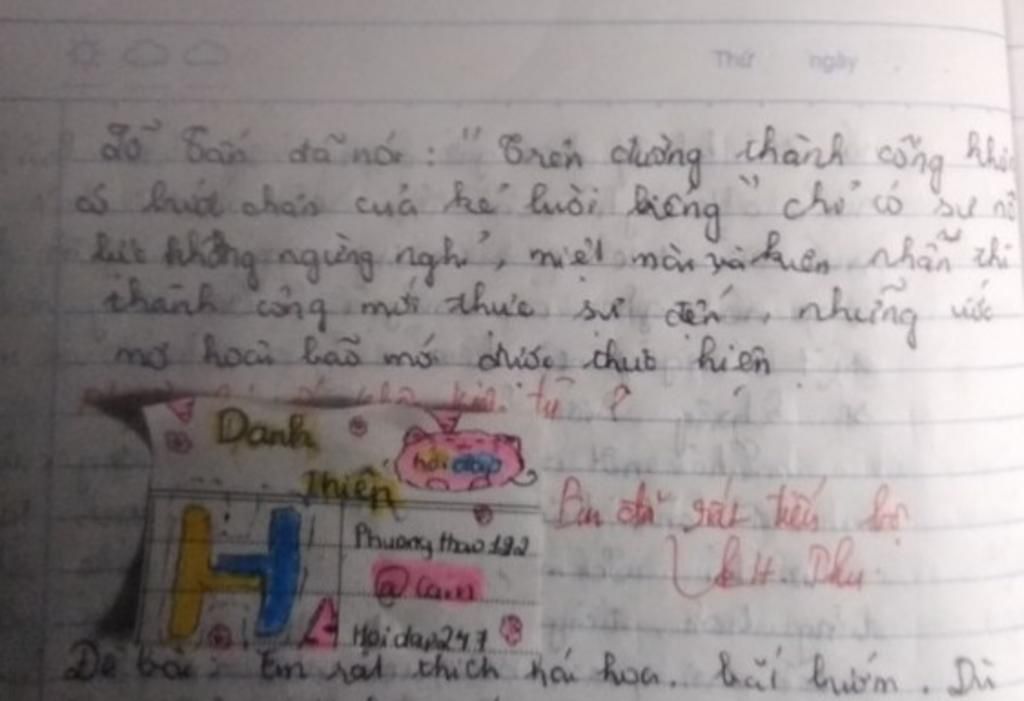 Thứ ngày
Lỗ Tấn đã nói: "Trên đường thành công
có bước chân của kẻ lười biếng" chỉ có sự
lực không ngừng nghỉ, miệt mài và kiên nhẫn thì
thành công mới thực sự đến, những ước
mơ hoài bão mới được thực hiện
tự ?
Danh
hỏi đáp
Thiếp
Phuongthao192
H
@ Cam
A
Hoidap247
đã rất tiến bộ
Đề bài: Em rất thích hái hoa, bắt bướm. Dù